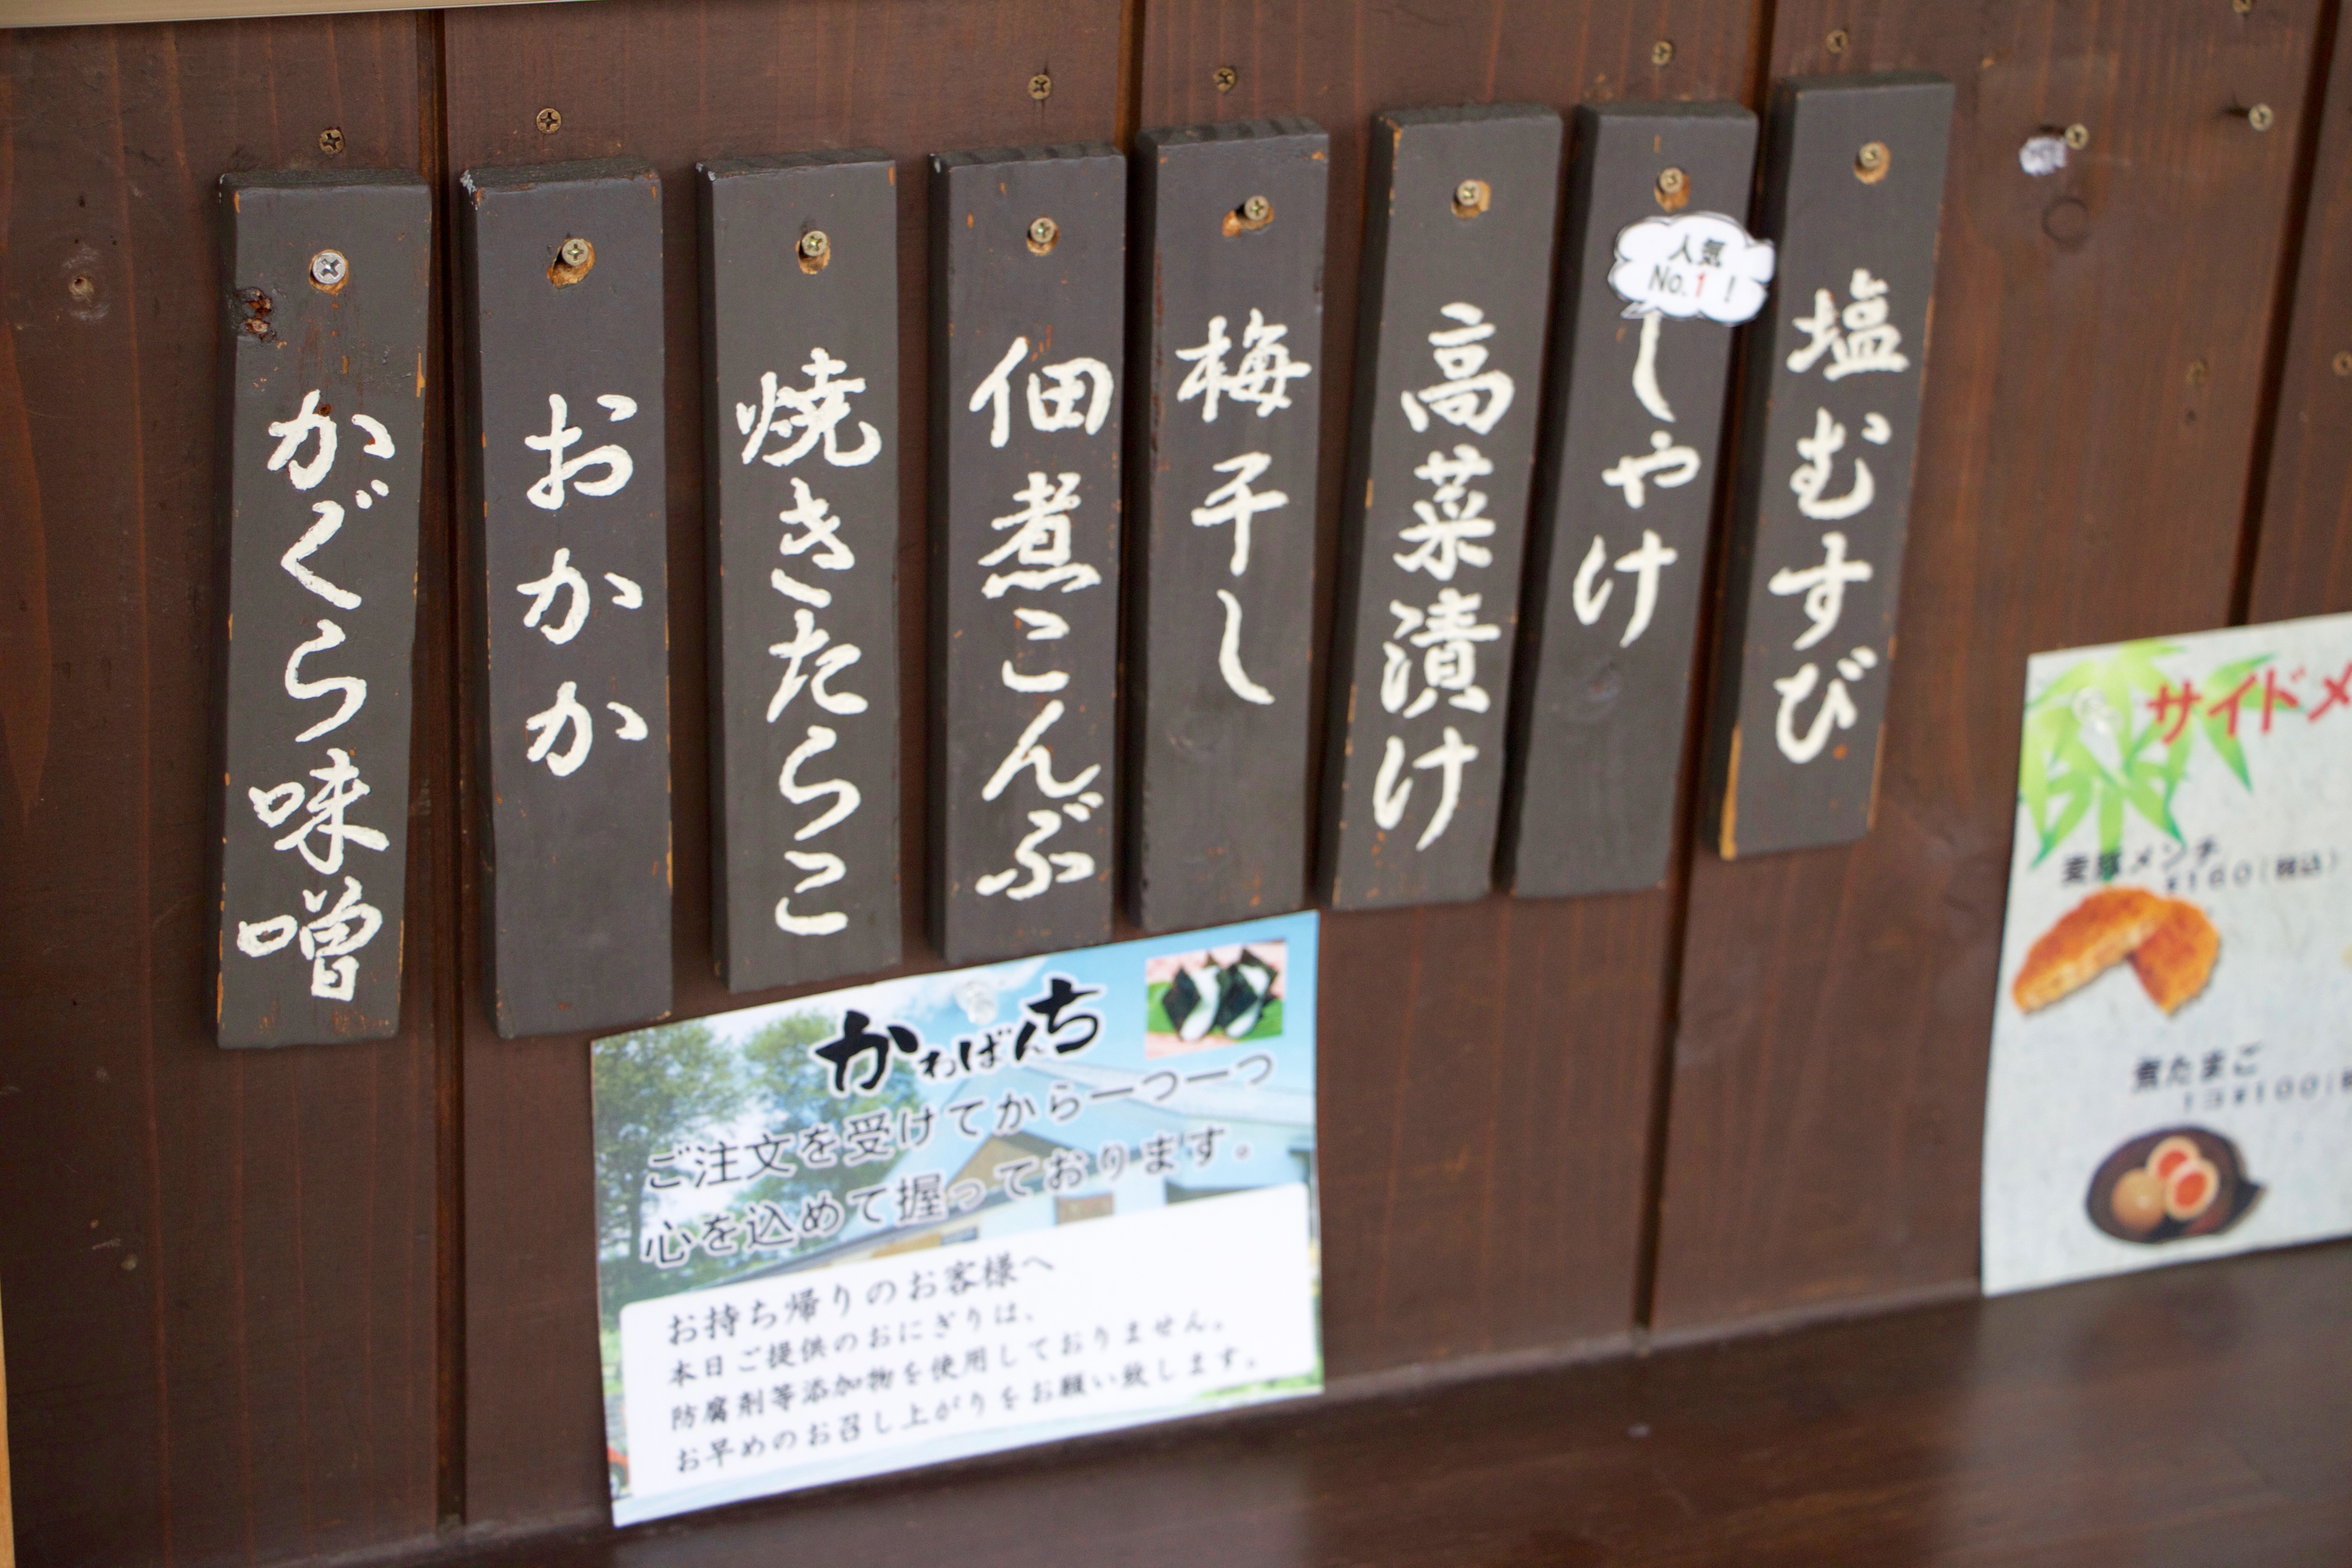 塩むすび
人気
No.1!
しゃけ
高菜漬け
梅干し
佃煮こんぶ
焼きたらこ
おかか
かぐら味噌
かわばんち
ご注文を受けてから一つ一つ
心を込めて握っております。
お持ち帰りのお客様へ
本日ご提供のおにぎりは、
防腐剤等添加物を使用しておりません。
お早めのお召し上がりをお願い致します。
サイドメ
メンチ
¥160(税込)
煮たまご